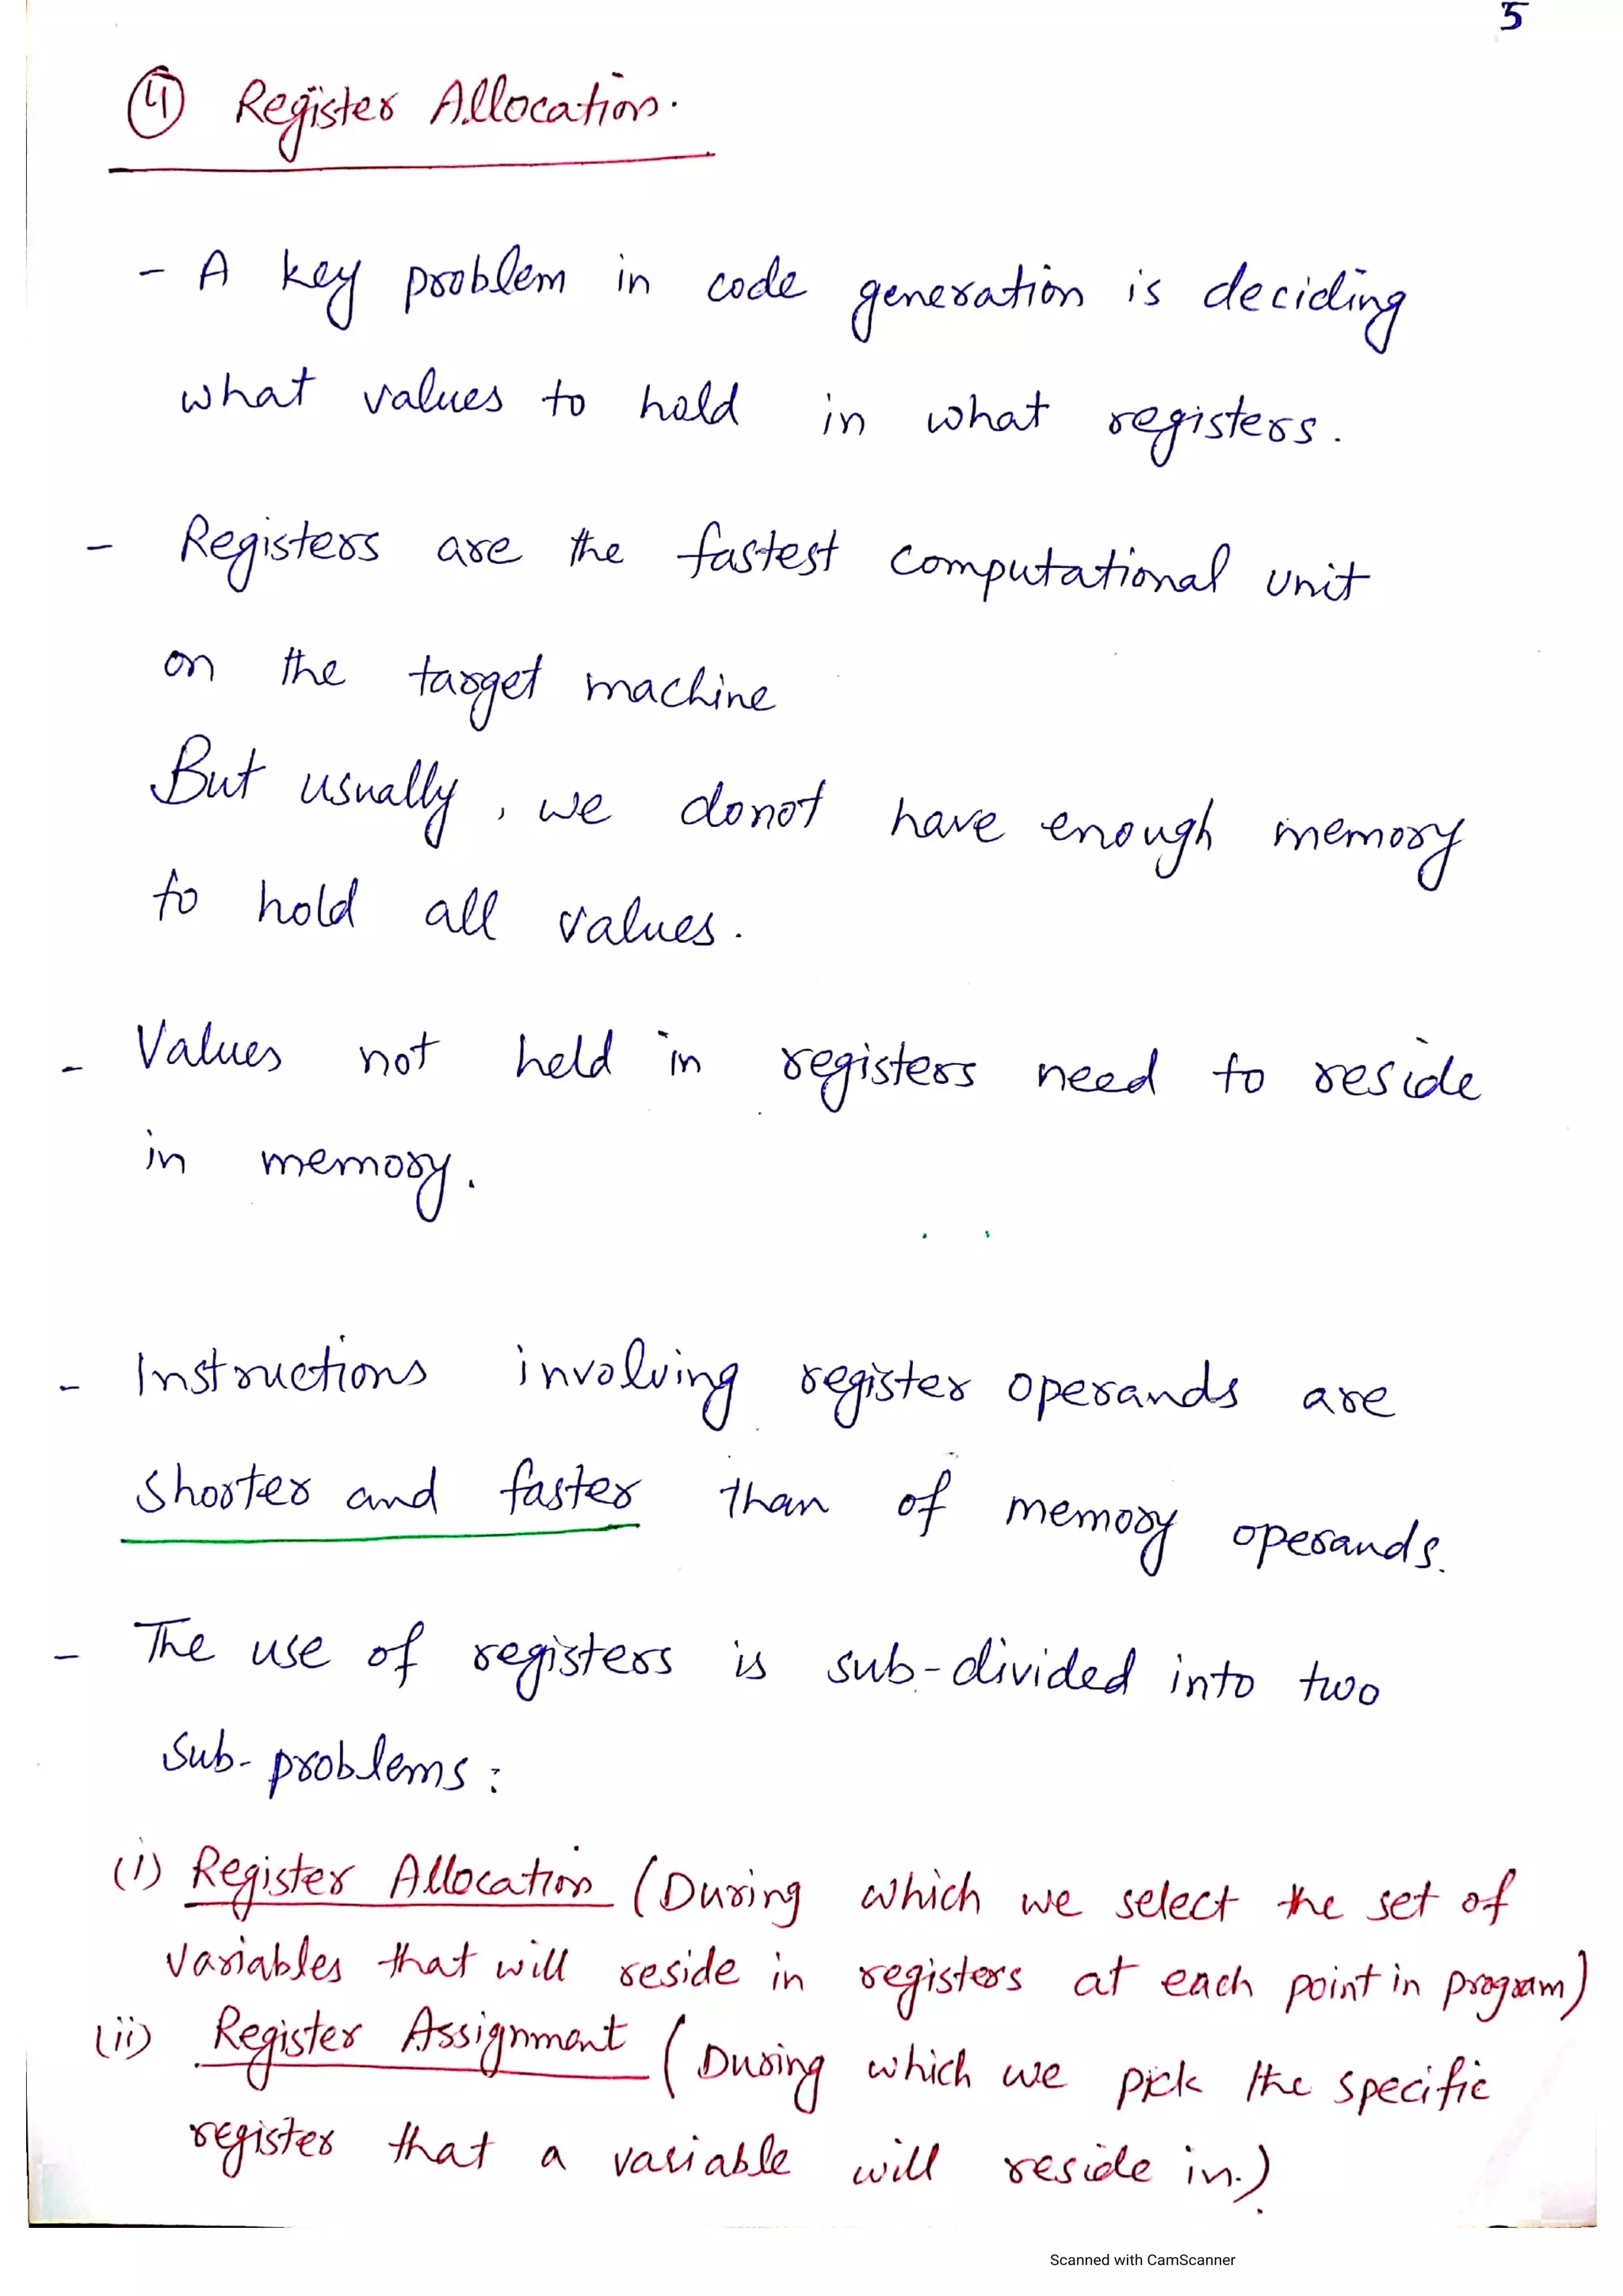 5
4 Register Allocation.
- A key problem in code generation is deciding
what values to hold in what registers.
- Registers are the fastest computational unit
on the target machine
But usually, we donot have enough memory
to hold all values.
- Values not held in registers need to reside
in memory.
- Instructions involving register operands are
shorter and faster than of memory operands.
- The use of registers is sub-divided into two
sub-problems:
(i) Register Allocation (During which we select the set of
variables that will reside in registers at each point in program)
(ii) Register Assignment (During which we pick the specific
register that a variable will reside in.)
Scanned with CamScanner